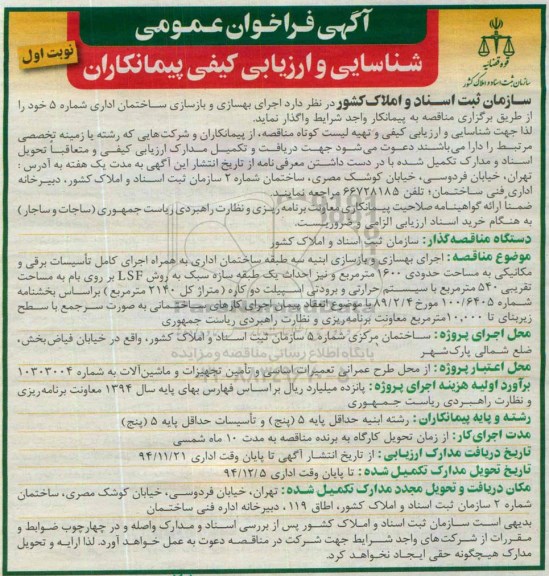 آگهی فراخوان عمومی
شناسایی و ارزیابی کیفی پیمانکاران
نوبت اول
قوه قضائیه
سازمان ثبت اسناد و املاک کشور
سازمان ثبت اسناد و املاک کشور در نظر دارد اجرای بهسازی و بازسازی ساختمان اداری شماره ۵ خود را
از طریق برگزاری مناقصه به پیمانکار واجد شرایط واگذار نماید.
لذا جهت شناسایی و ارزیابی کیفی و تهیه لیست کوتاه مناقصه، از پیمانکاران و شرکت‌هایی که رشته یا زمینه تخصصی
مرتبط را دارا می‌باشند دعوت می‌شود جهت دریافت و تکمیل مدارک ارزیابی کیفی و متعاقباً تحویل
اسناد و مدارک تکمیل شده با در دست داشتن معرفی نامه از تاریخ انتشار این آگهی به مدت یک هفته به آدرس :
تهران، خیابان فردوسی، خیابان کوشک مصری، ساختمان شماره ۲ سازمان ثبت اسناد و املاک کشور، دبیرخانه
اداری فنی ساختمان؛ تلفن ۶۶۷۲۸۱۸۵ مراجعه نمایند.
ضمناً ارائه گواهینامه صلاحیت پیمانکاری معاونت برنامه ریزی و نظارت راهبردی ریاست جمهوری (ساجات و ساجار)
به هنگام خرید اسناد ارزیابی الزامی و ضروریست.
دستگاه مناقصه‌گذار: سازمان ثبت اسناد و املاک کشور
موضوع مناقصه: اجرای بهسازی و بازسازی ابنیه سه طبقه ساختمان اداری به همراه اجرای کامل تأسیسات برقی و
مکانیکی به مساحت حدودی ۱۶۰۰ مترمربع و نیز احداث یک طبقه سازه سبک به روش LSF بر روی بام به مساحت
تقریبی ۵۴۰ مترمربع با سیستم حرارتی و برودتی اسپیلت دو کاره (متراژ کل ۲۱۴۰ مترمربع) براساس بخشنامه
شماره ۱۰۰/۶۴۰۵ مورخ ۸۹/۲/۴ با موضوع انعقاد پیمان اجرای کارهای ساختمانی به صورت سرجمع با سطح
زیربنای تا ۱۰,۰۰۰ مترمربع معاونت برنامه‌ریزی و نظارت راهبردی ریاست جمهوری
محل اجرای پروژه: ساختمان مرکزی شماره ۵ سازمان ثبت اسناد و املاک کشور، واقع در خیابان فیاض‌بخش،
ضلع شمالی پارک‌شهر
محل اعتبار پروژه: از محل طرح عمرانی تعمیرات اساسی و تأمین تجهیزات و ماشین‌آلات به شماره ۱۰۳۰۳۰۰۴
برآورد اولیه هزینه اجرای پروژه: پانزده میلیارد ریال براساس فهارس بهای پایه سال ۱۳۹۴ معاونت برنامه‌ریزی
و نظارت راهبردی ریاست جمهوری
رشته و پایه پیمانکاران: رشته ابنیه حداقل پایه ۵ (پنج) و تأسیسات حداقل پایه ۵ (پنج)
مدت اجرای کار: از زمان تحویل کارگاه به برنده مناقصه به مدت ۱۰ ماه شمسی
تاریخ دریافت مدارک ارزیابی: از تاریخ انتشار آگهی تا پایان وقت اداری ۹۴/۱۱/۲۱
تاریخ تحویل مدارک تکمیل شده: تا پایان وقت اداری ۹۴/۱۲/۵
مکان دریافت و تحویل مجدد مدارک تکمیل شده: تهران، خیابان فردوسی، خیابان کوشک مصری، ساختمان
شماره ۲ سازمان ثبت اسناد و املاک کشور، اطاق ۱۱۹، دبیرخانه اداره فنی ساختمان
بدیهی است سازمان ثبت اسناد و املاک کشور پس از بررسی اسناد و مدارک واصله و در چهارچوب ضوابط و
مقررات از شرکت‌های واجد شرایط جهت شرکت در مناقصه دعوت به عمل خواهد آورد. لذا ارایه و تحویل
مدارک هیچگونه حقی ایجاد نخواهد کرد.